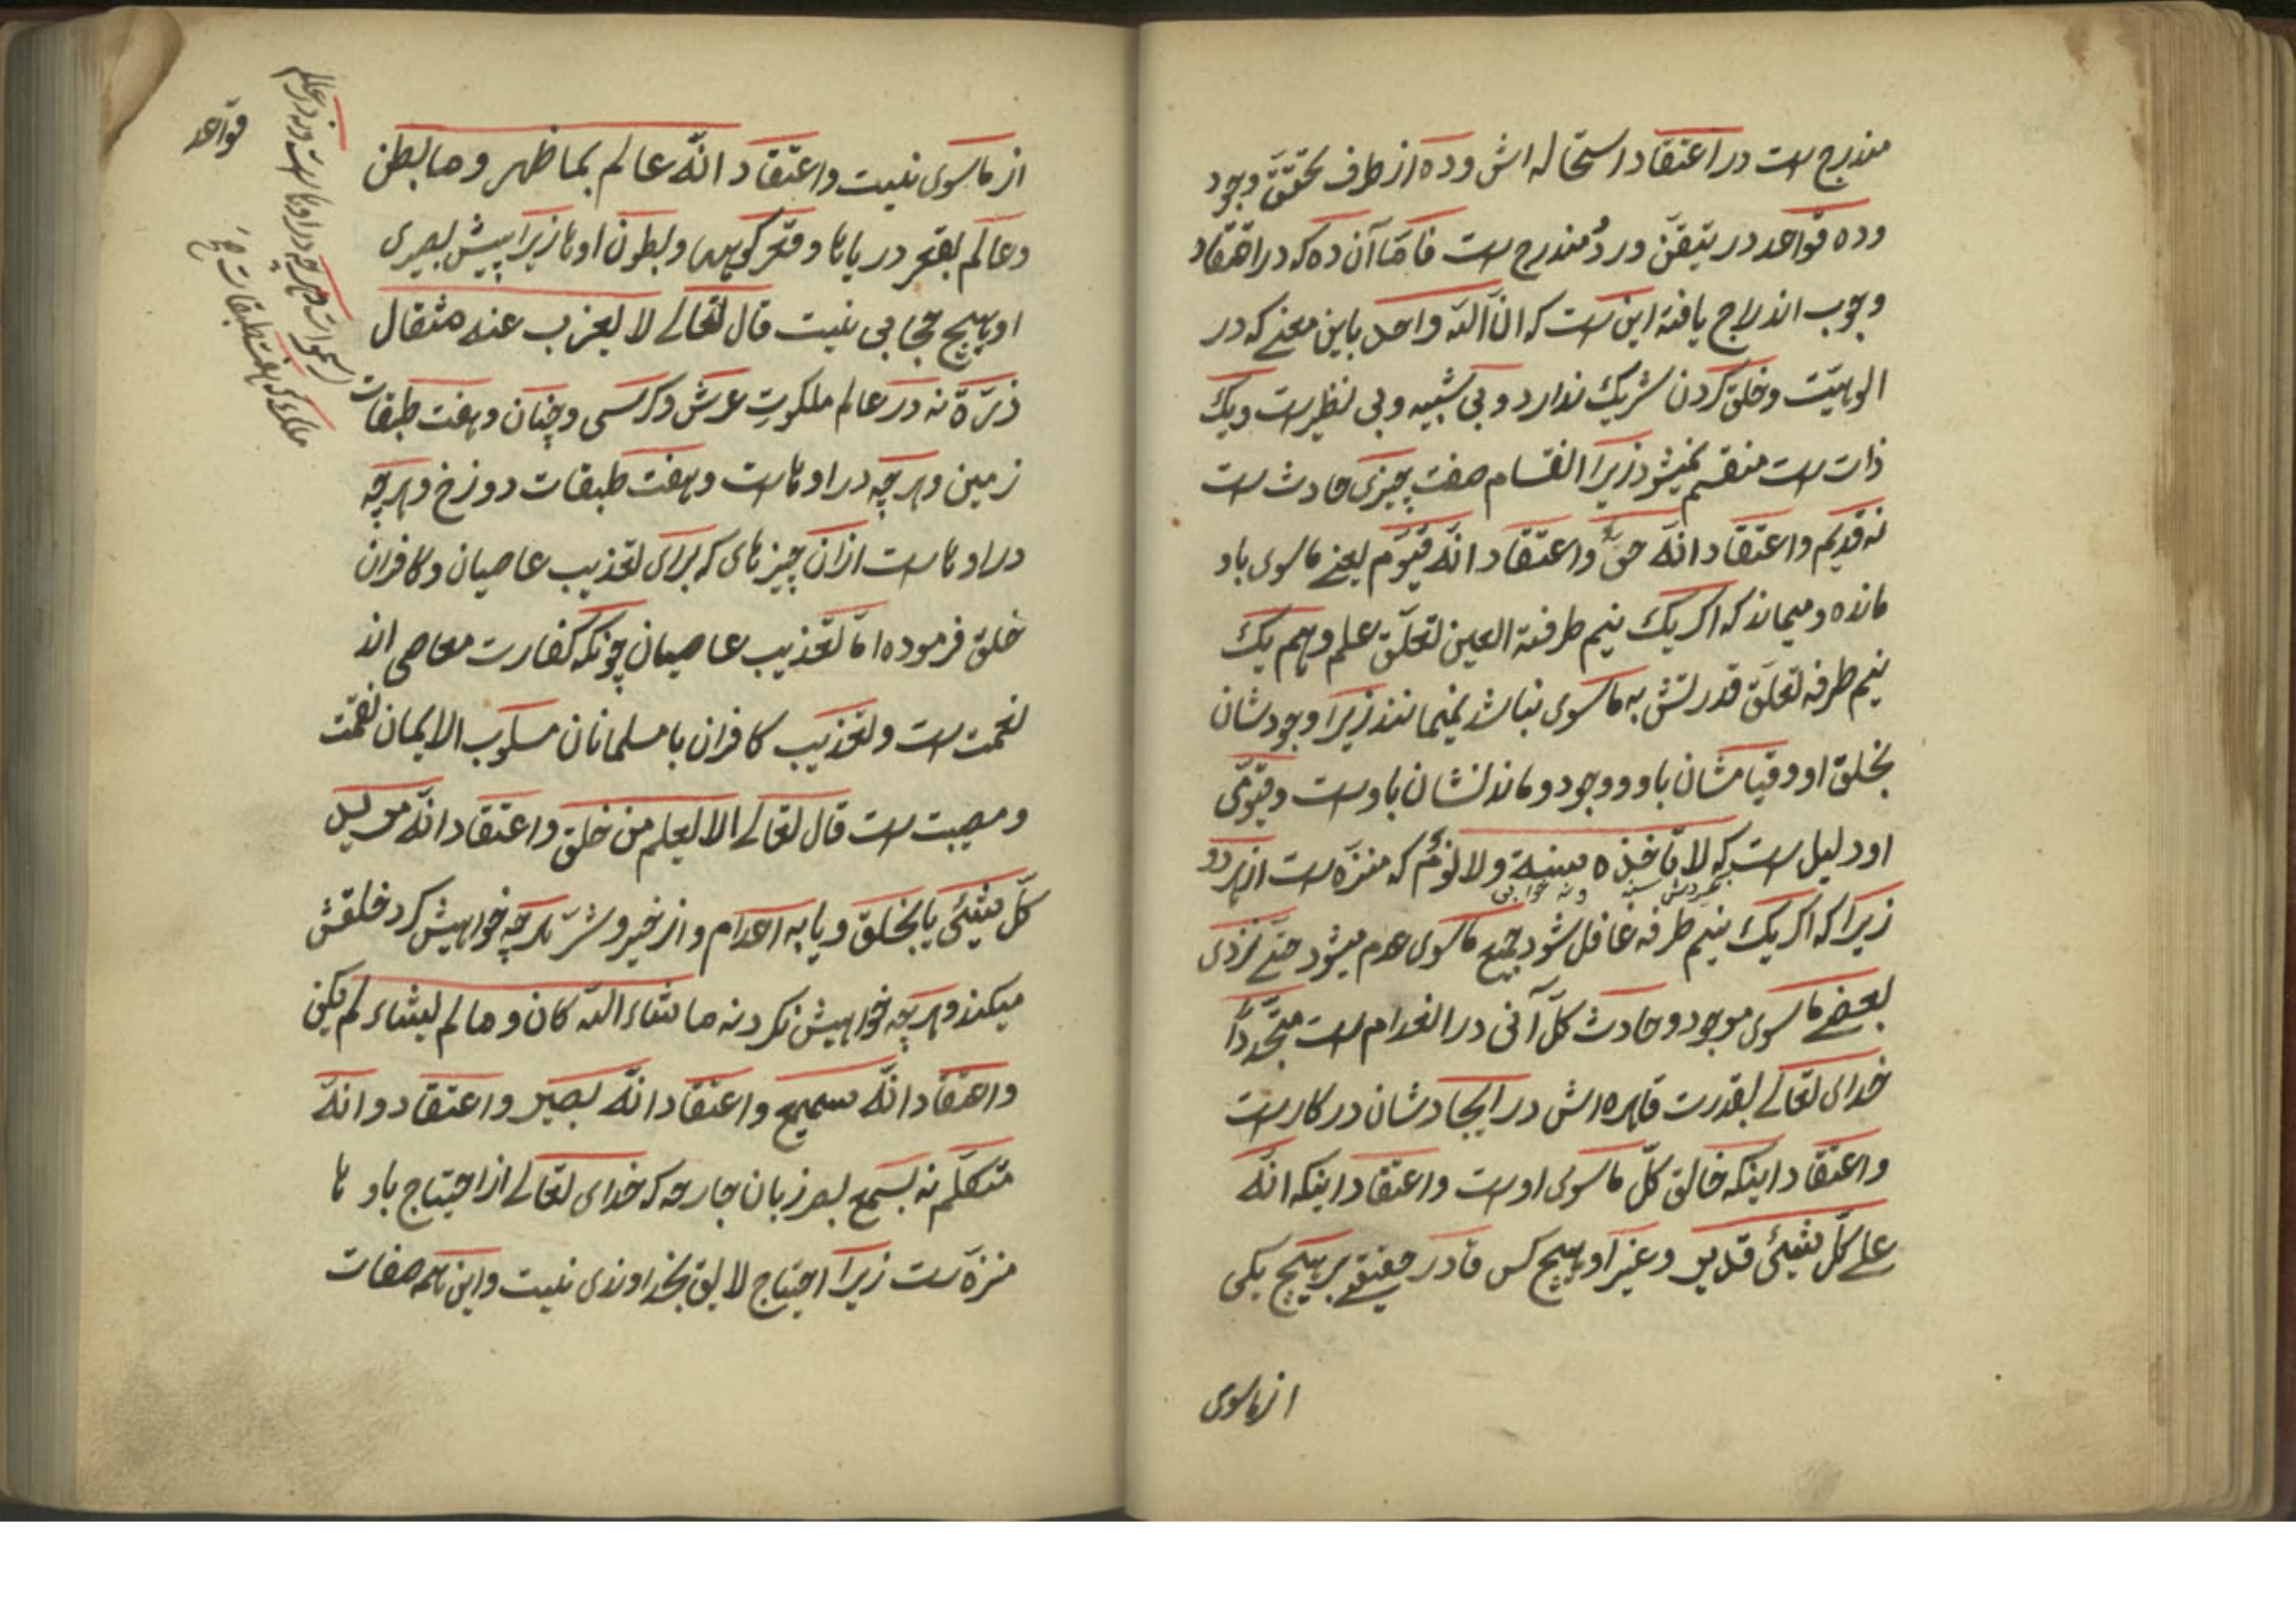 مندرج است در اعتقاد استحاله اش و ده از طرف تحقق وجود
و ده قواعد در تیقن ورد مندرج است فاما آن ده که در اعتقاد
وجوب اندراج یافته این است که ان الله واحد باین معنے که در
الوهیت و خلق کردن شریک ندارد و بی شبیه و بی نظیر است و یک
ذات است منقسم نمیشود زیرا انقسام صفت چیزی حادث است
نه قدیم و اعتقاد انه حی و اعتقاد انه قیوم یعنے ماسوی باو
مانده و میماند که اگر یک نیم طرفة العین تعلق علم و هم یک
نیم طرفه تعلق قدرتش به ماسوی نباشد نمیمانند زیرا وجودشان
بخلق او و قیامشان باو و وجود و ماندنشان باوست و قیومی
او دلیل است که لا تاخذه سنة ولا نوم که منزه است از هر دو
زیرا که اگر یک نیم طرفه غافل شود جمیع ماسوی عدم میشود حتے نزدی
بعضے ماسوی موجود و حادث کل آنی در انعدام است متجددا
خدای تعالے بقدرت قاهره اش در ایجادشان در کار است
و اعتقاد اینکه خالق کل ماسوی اوست و اعتقاد اینکه انه
علے کل شیئ قدیر و غیر او هیچ کس قادر حقیقے بر هیچ یکی
از ماسوی
از ماسوی نیست و اعتقاد انه عالم بما ظهر وما بطن
و عالم بقعر دریاها و قعر کوهها و بطون اوها زیرا پیش بصیری
او هیچ حجابی نیست قال تعالے لا یعزب عنه مثقال
ذرة نه در عالم ملکوت عرش و کرسی و جنان و هفت طبقات
زمین و هرچه در اوهاست و هفت طبقات دوزخ و هرچه
در اوهاست از ان چیزهای که برای تعذیب عاصیان و کافران
خلق فرموده اما تعذیب عاصیان چونکه کفارت معاصی اند
نعمت است و تعذیب کافران با مسلمانان مسلوب الایمان نقمت
و مصیبت است قال تعالے الا یعلم من خلق و اعتقاد انه مرید
کل شیئ یا بخلق و یا به اعدام و از خیر و شر هرچه خواهیش کرد خلقش
میکند و هرچه خواهیش نکرد نه ما شاء الله کان وما لم یشاء لم یکن
و اعتقاد انه سمیع و اعتقاد انه بصیر و اعتقاد و انه
متکلم نه بسمع بصر زبان جارحه که خدای تعالے از احتیاج باوها
منزه است زیرا احتیاج لایق بخداوندی نیست و این همه صفات
قواعد
السموات و هرچه در اوهاست و نه در عالم
ملک که هفت طبقات